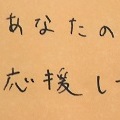 あなたの
応援し